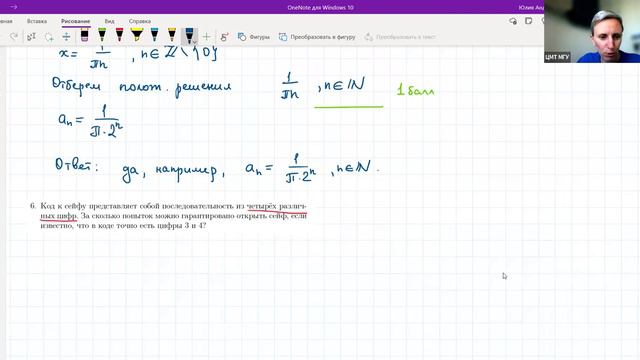 OneNote для Windows 10
Юлия Анд
вная Вставка Рисование Вид Справка
Фигуры Преобразовать в фигуру Преобразовать в текст
ЦМТ МГУ
x = 1/πn , n ∈ ℤ \ {0}
Отберем полож. решения 1/πn , n ∈ ℕ 1 балл
aₙ = 1/π·2ⁿ
Ответ: да, например, aₙ = 1/π·2ⁿ , n ∈ ℕ.
6. Код к сейфу представляет собой последовательность из четырёх различ-
ных цифр. За сколько попыток можно гарантировано открыть сейф, если
известно, что в коде точно есть цифры 3 и 4?